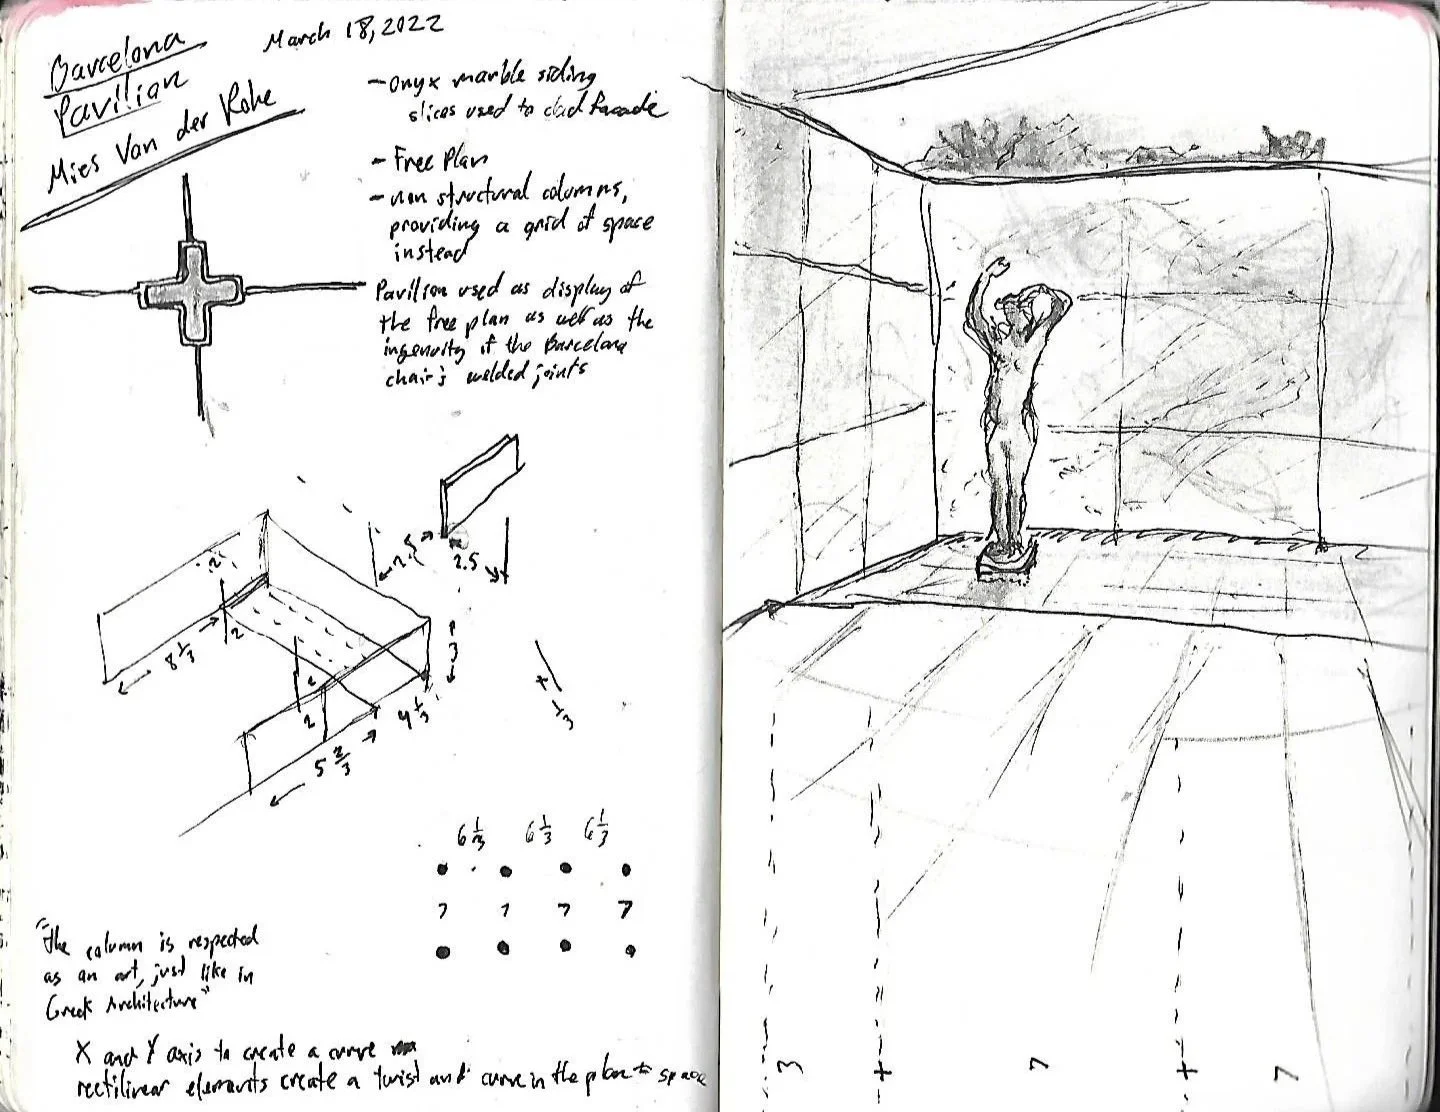 Barcelona
Pavilian
March 18, 2022
Mies Van der Rohe
- onyx marble siding
slices used to clad facade
- Free Plan
- non structural columns,
providing a grid of space
instead
Pavilion used as display of
the free plan as well as the
ingenuity of the Barcelona
chair's welded joints
2.5
2.5
2
2
8 1/3
3
2
4 1/3
5 2/3
1/3
6 1/3 6 1/3 6 1/3
7 7 7 7
"The column is respected
as an art, just like in
Greek Architecture"
X and Y axis to create a curve
rectilinear elements create a twist and curve in the plan to space
3 7 7